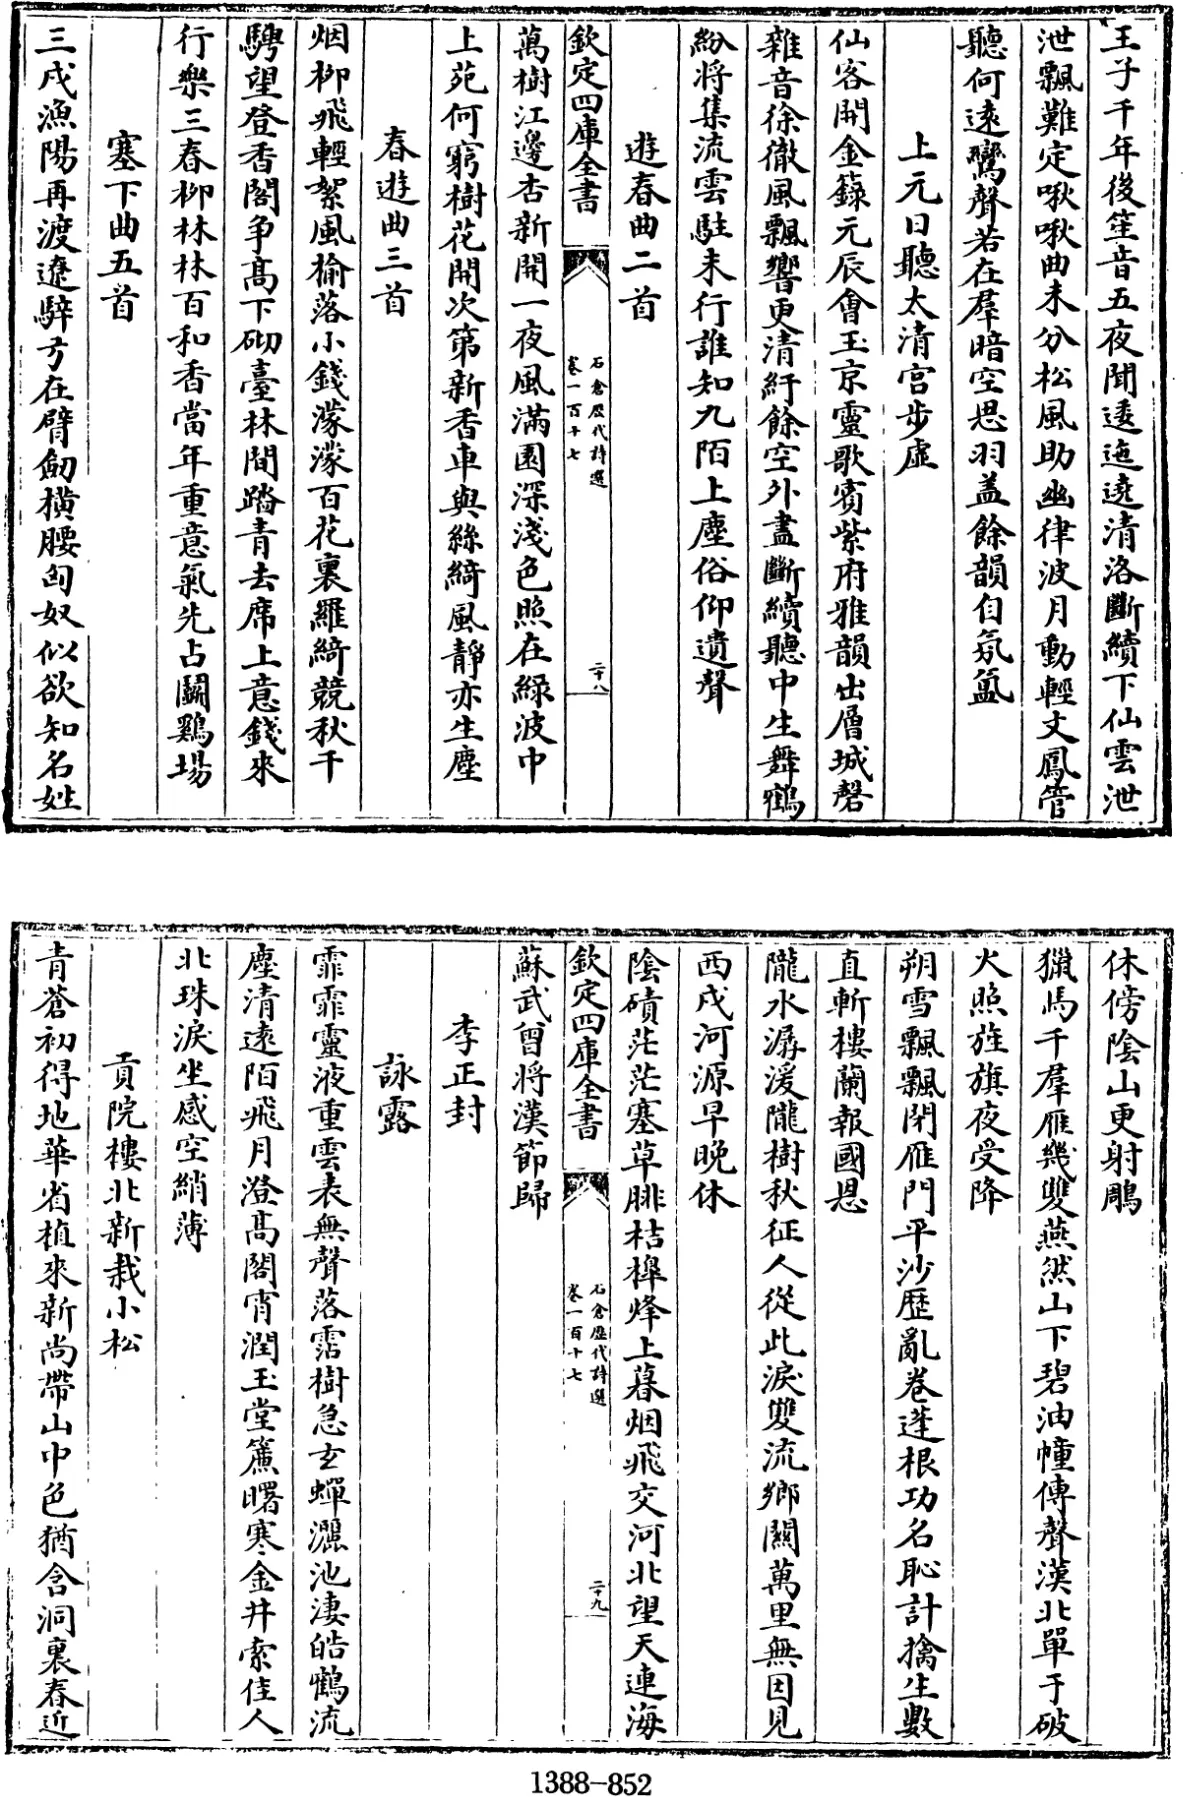 王子千年後笙音五夜聞逶迤遶清洛斷續下仙雲泄
泄飄難定啾啾曲未分松風助幽律波月動輕文鳳管
聽何遠鸞聲若在羣暗空思羽盖餘韻自氛氳
上元日聽太清宫步虛
仙客開金籙元辰會玉京靈歌賓紫府雅韻出層城磬
雜音徐徹風飄響更清紆餘空外盡斷續聽中生舞鶴
紛將集流雲駐未行誰知九陌上塵俗仰遺聲
遊春曲二首
萬樹江邊杏新開一夜風滿園深淺色照在緑波中
上苑何窮樹花開次第新香車與絲綺風靜亦生塵
春遊曲三首
烟柳飛輕絮風榆落小錢濛濛百花裏羅綺競秋千
騁望登香閣争高下砌臺林間踏青去席上意錢來
行樂三春柳林林百和香當年重意氣先占鬭鷄場
塞下曲五首
三戍漁陽再渡遼騂弓在臂劒横腰匈奴似欲知名姓
欽定四庫全書
石倉歷代詩選
卷一百十七
二十八
休傍陰山更射鵰
獵馬千羣雁幾雙燕然山下碧油幢傳聲漢北單于破
火照旌旗夜受降
朔雪飄飄閉雁門平沙歷亂卷蓬根功名恥計擒生數
直斬樓蘭報國恩
隴水潺湲隴樹秋征人從此淚雙流鄉關萬里無因見
西戍河源早晚休
陰磧茫茫塞草腓桔槹烽上暮烟飛交河北望天連海
蘇武曾將漢節歸
李正封
詠露
霏霏靈液重雲表無聲落霑樹急玄蟬灑池淒皓鶴流
塵清遠陌飛月澄高閣宵潤玉堂簾曙寒金井索佳人
北珠淚坐感空綃薄
貢院樓北新栽小松
青蒼初得地華省植來新尚帶山中色猶含洞裏春近
欽定四庫全書
石倉歷代詩選
卷一百十七
二十九
1388-852